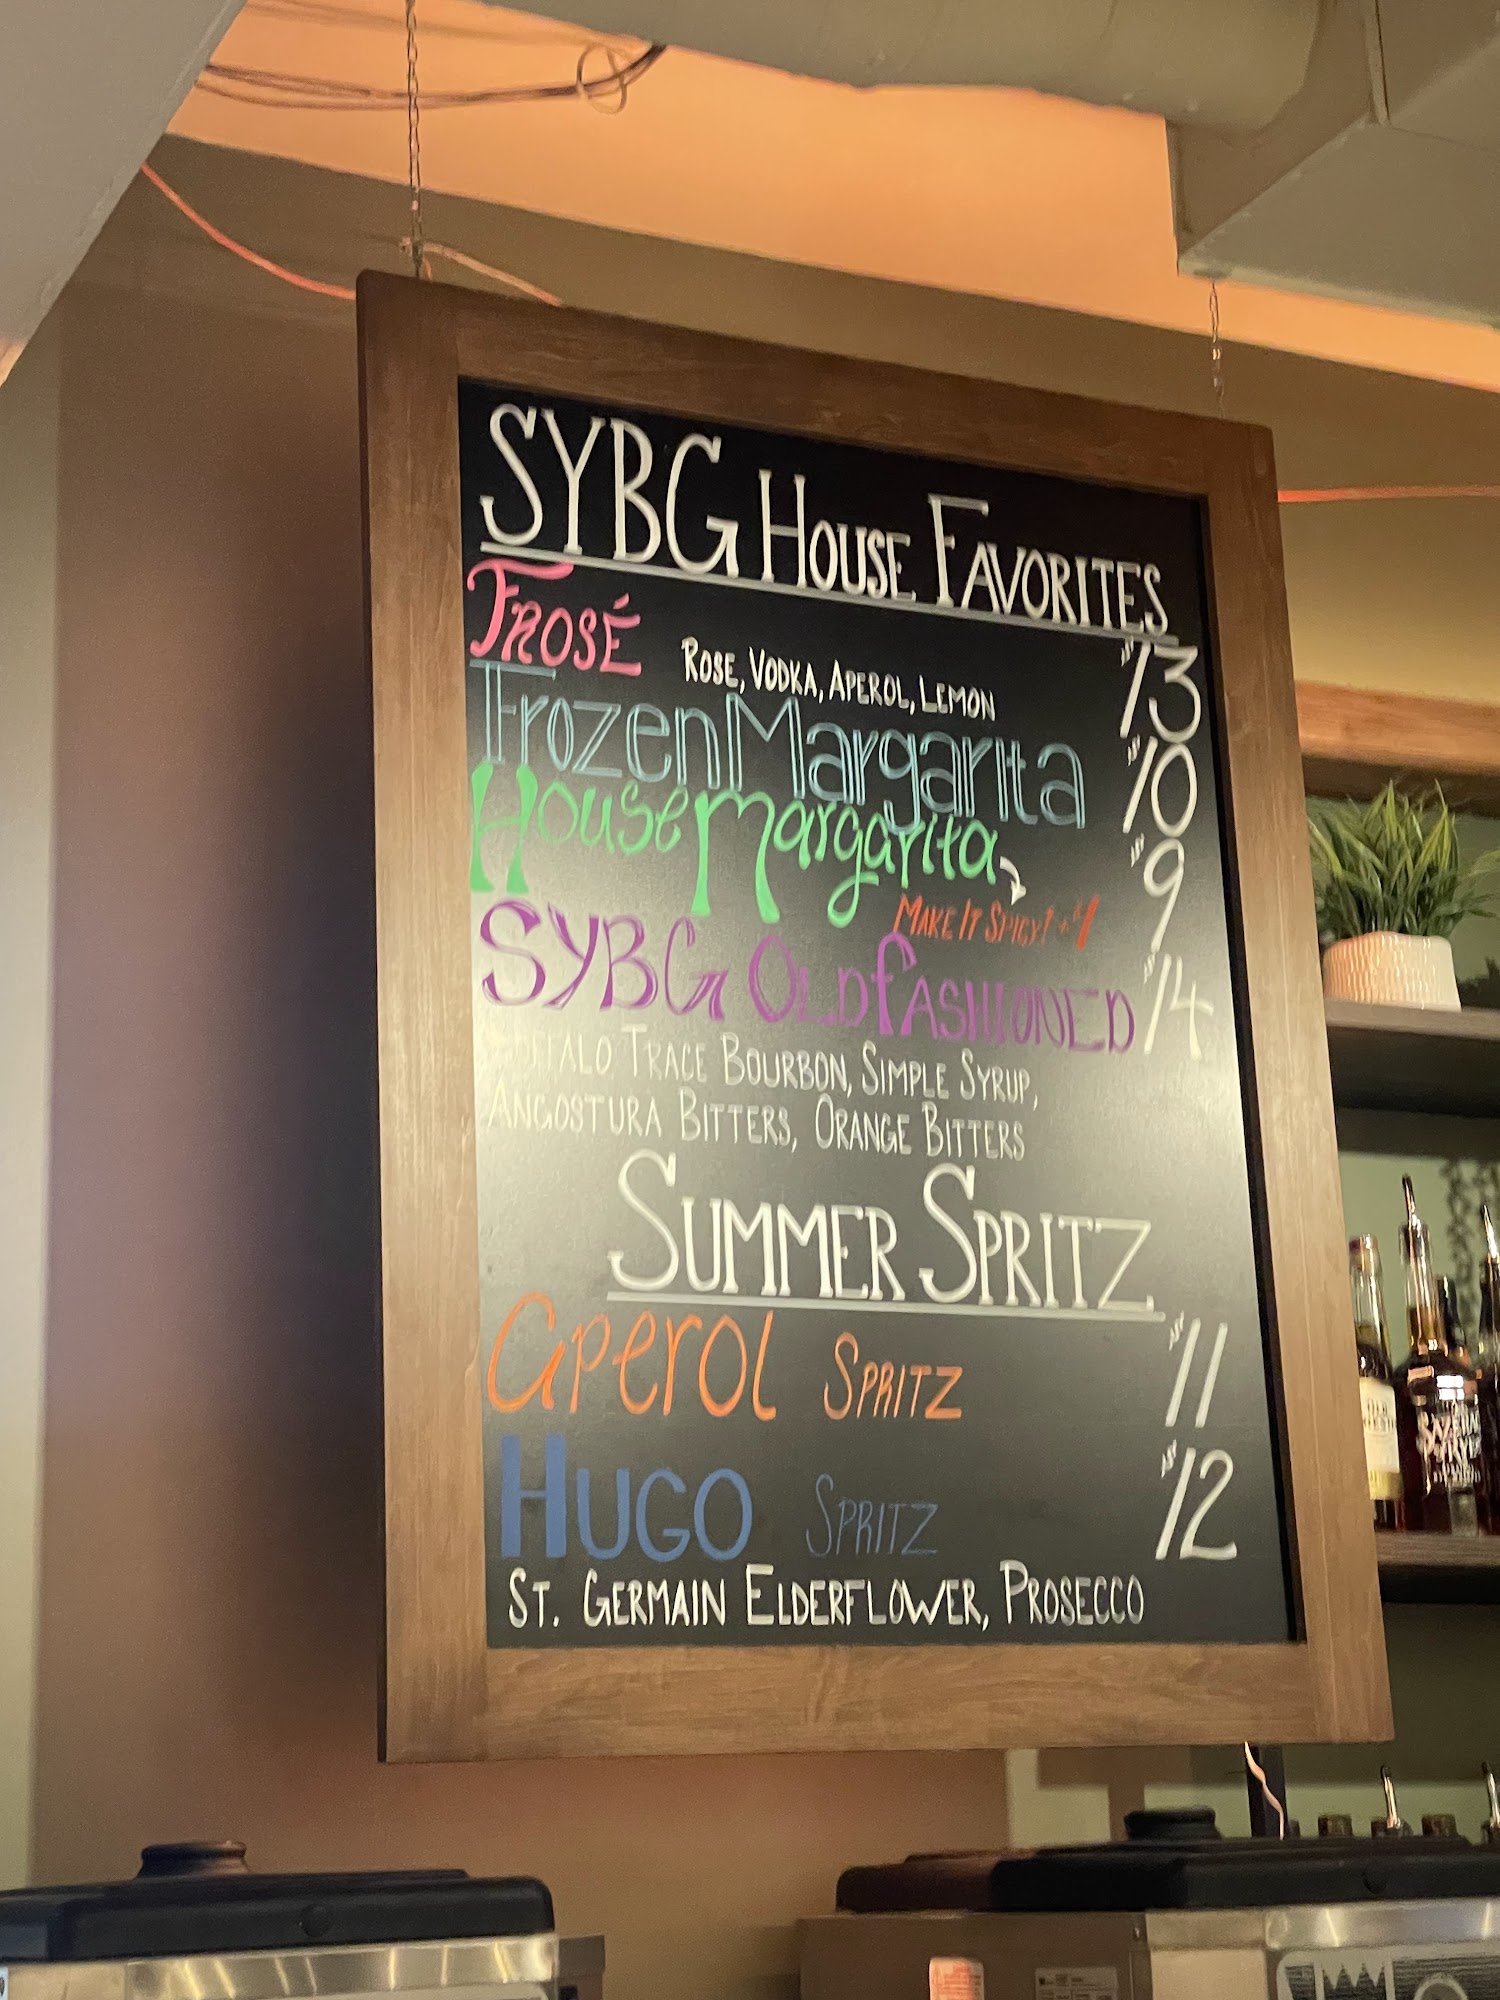 SYBG HOUSE FAVORITES
FROSÉ ROSE, VODKA, APEROL, LEMON 13
Frozen Margarita 10
House Margarita 9
MAKE IT SPICY! +$1
SYBG OLD FASHIONED 14
BUFFALO TRACE BOURBON, SIMPLE SYRUP,
ANGOSTURA BITTERS, ORANGE BITTERS
SUMMER SPRITZ
aperol SPRITZ 11
HUGO SPRITZ 12
ST. GERMAIN ELDERFLOWER, PROSECCO
SAZERAC
RYE